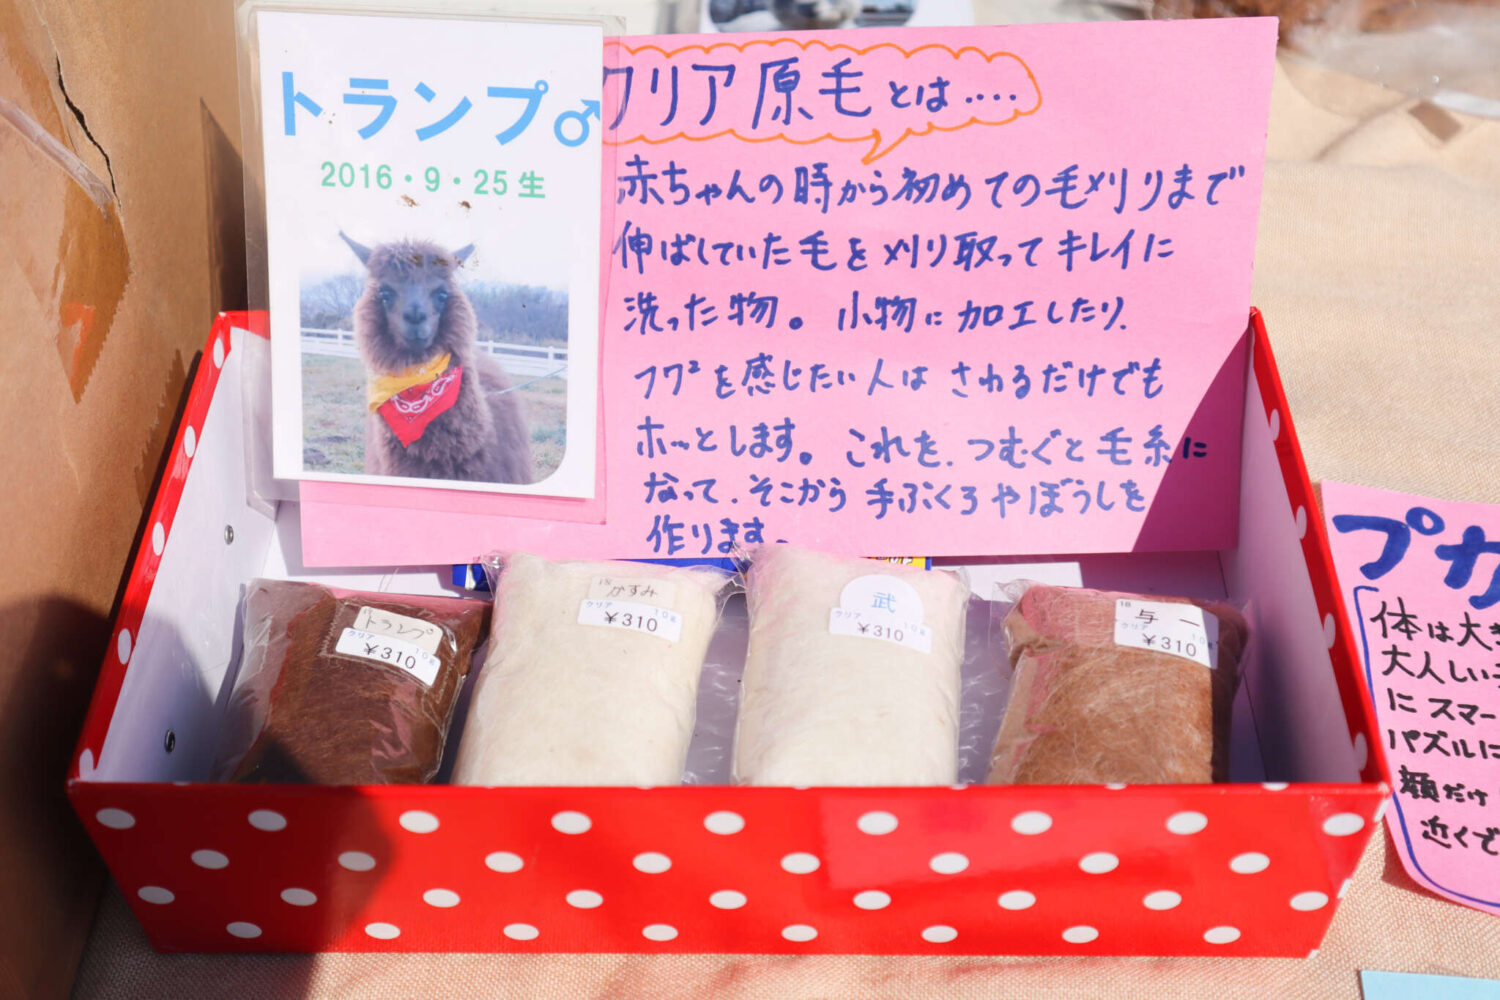 トランプ♂
2016・9・25生
クリア原毛とは....
赤ちゃんの時から初めての毛刈りまで
伸ばしていた毛を刈り取ってキレイに
洗った物。小物に加工したり、
フワ²を感じたい人はさわるだけでも
ホッとします。これを、つむぐと毛糸に
なって、そこから手ぶくろやぼうしを
作ります。
トランプ
クリア 10g
¥310
18
かすみ
クリア 10g
¥310
武
クリア 10g
¥310
18
与一
クリア 10g
¥310
プカ
体は大き
大人しい
にスマー
パズルに
顔だけ
近くで